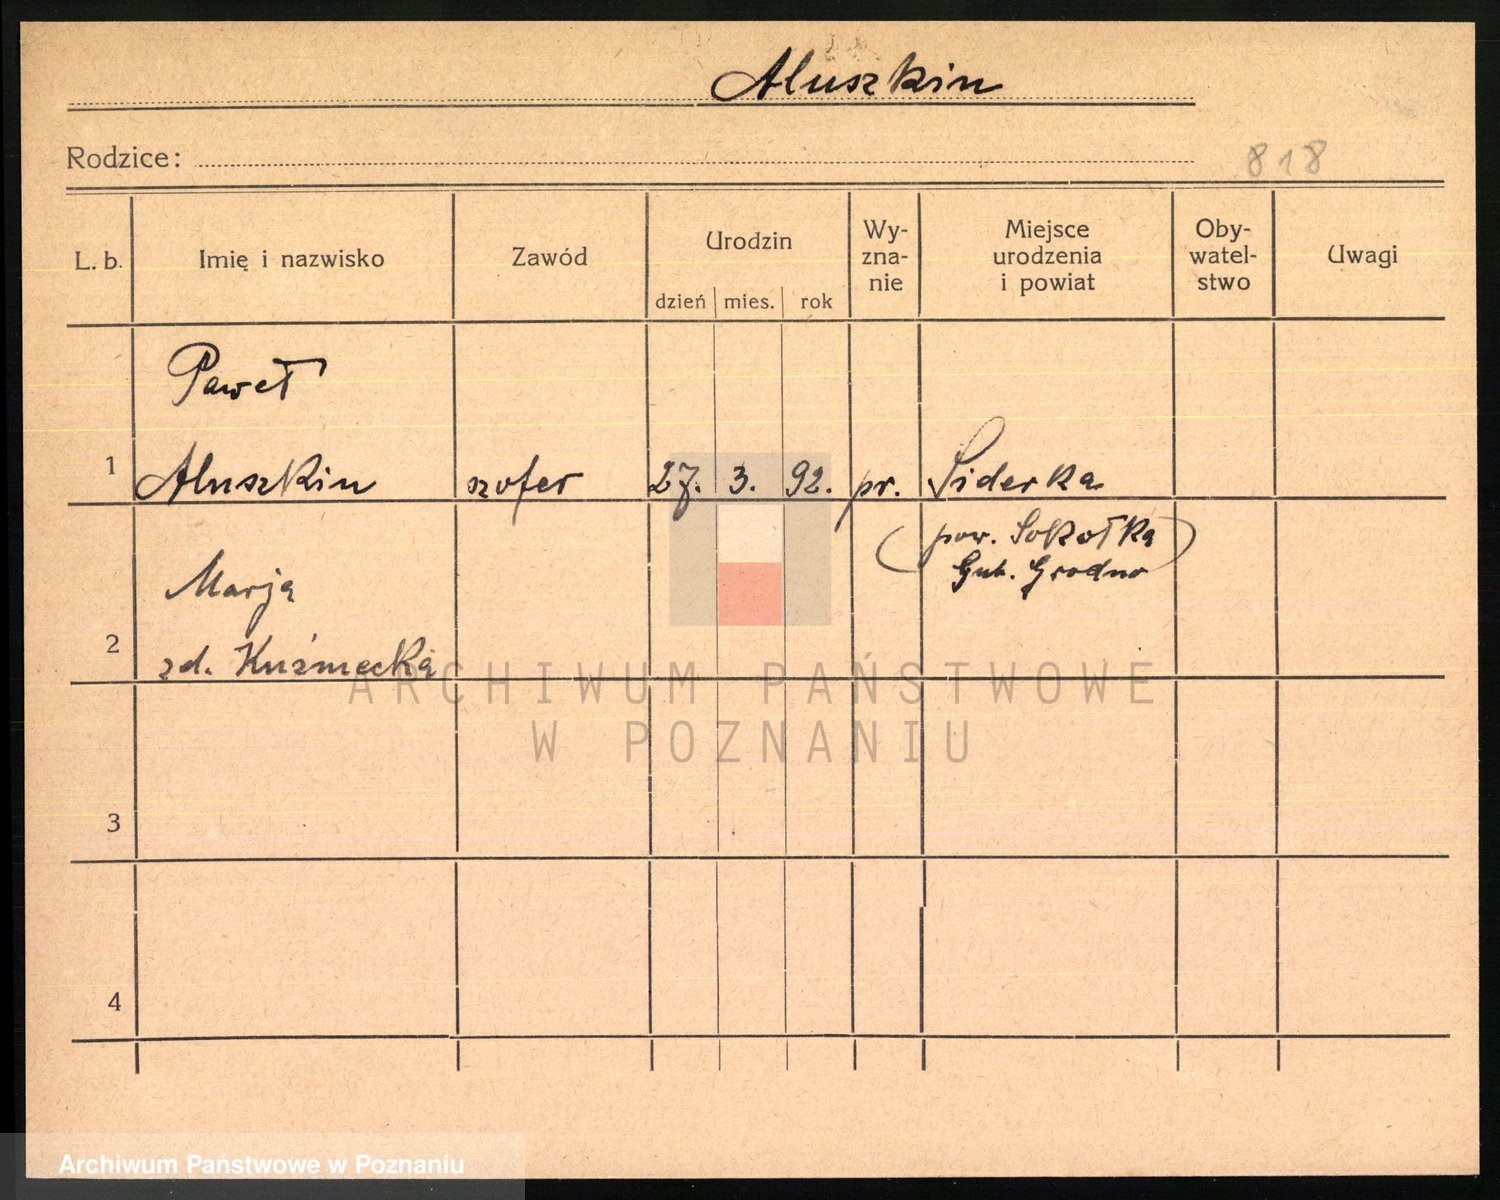 Aluszkin
Rodzice:
818
L. b. Imię i nazwisko Zawód Urodzin dzień mies. rok Wy-zna-nie Miejsce urodzenia i powiat Oby-watel-stwo Uwagi
Paweł
1 Aluszkin szofer 27. 3. 92. pr. Siderka
(pow. Sokołka
Gub. Grodno)
Marja
2 zd. Kuźmecka
ARCHIWUM PAŃSTWOWE
W POZNANIU
3
4
Archiwum Państwowe w Poznaniu